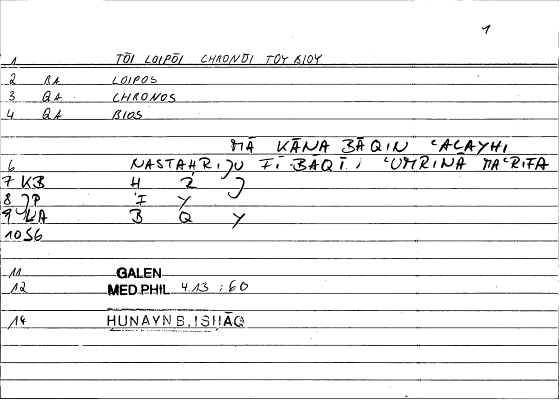 1
1 TŌI LOIPŌI CHRONŌI TOY BIOY
2 RA LOIPOS
3 QA CHRONOS
4 QA BIOS
MĀ KĀNA BĀQIN ʿALAYHI
6 NASTAHRIǦU FĪ BĀQĪ ʿUMRINĀ MAʿRIFA
7 KB H
8
9 B Q Y
10 S6
11 GALEN
12 MED PHIL 4.13 ; 60
14 HUNAYN B. ISHĀQ